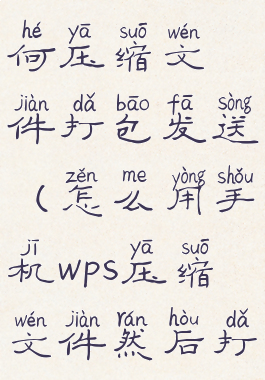 hé yā suō wén
何压缩文
jiàn dǎ bāo fā sòng
件打包发送
zěn me yòng shǒu
（怎么用手
jī yā suō
机wps压缩
wén jiàn rán hòu dǎ
文件然后打